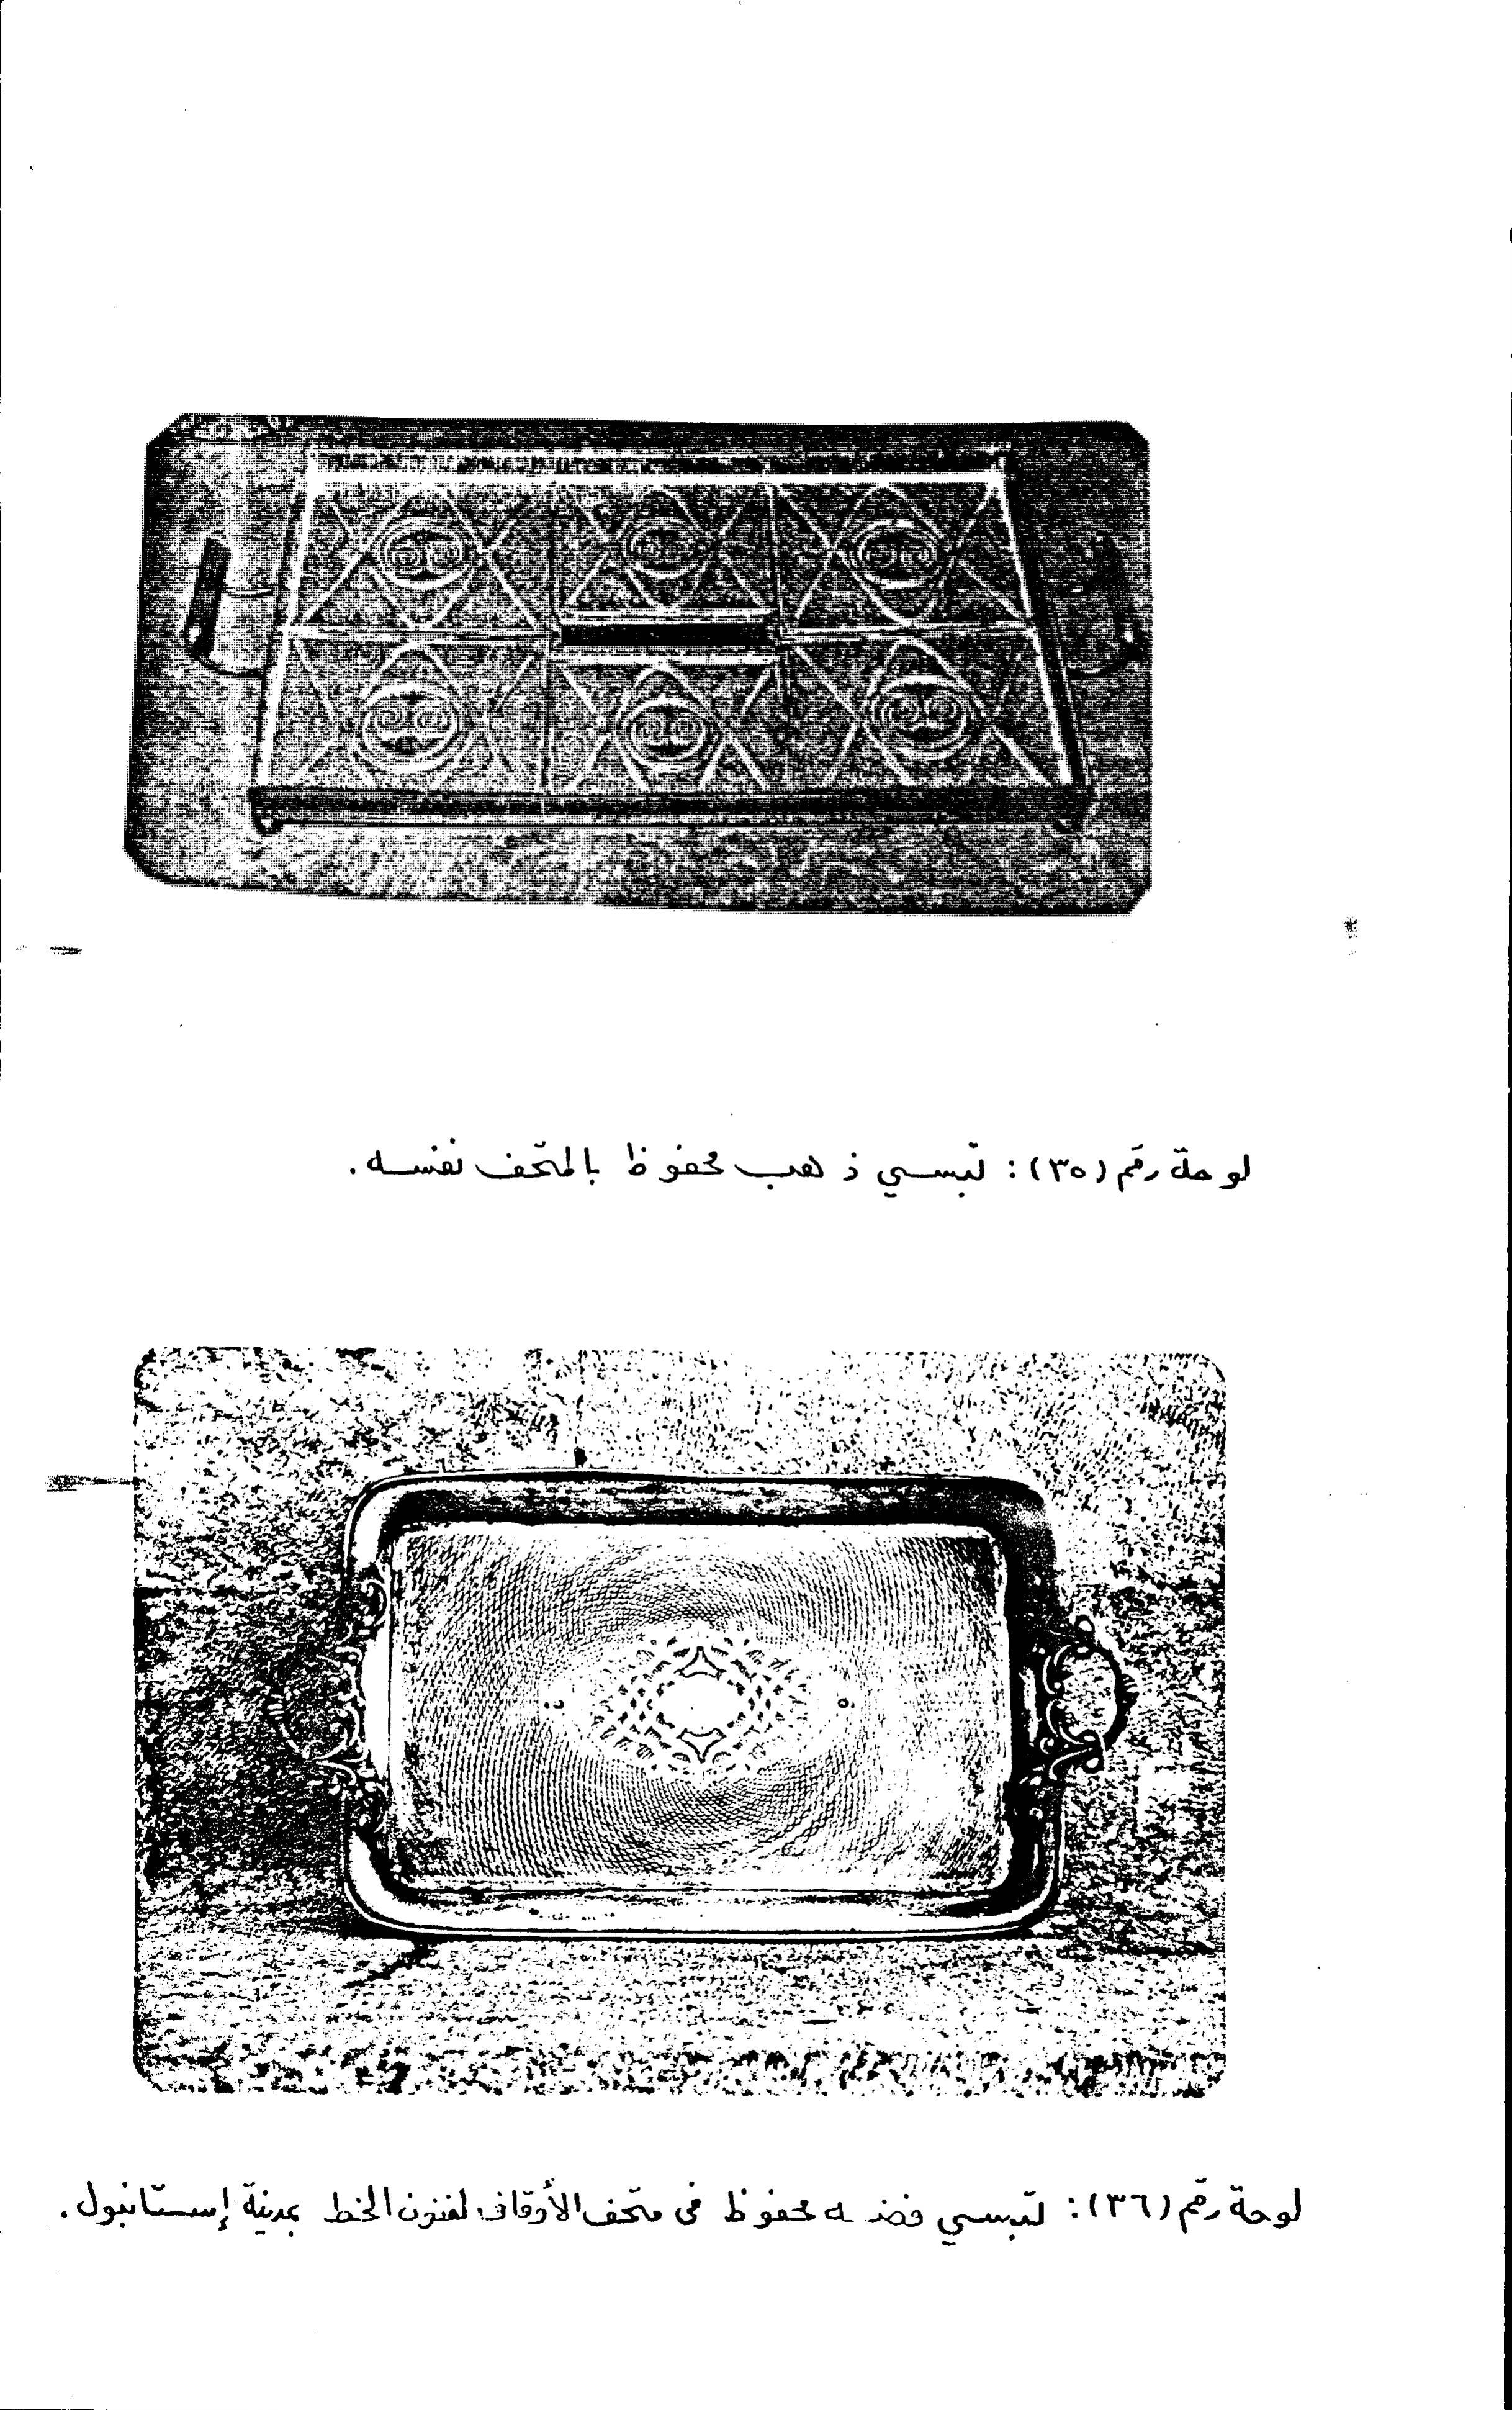 لوحة رقم (٣٥): تبسي ذهب محفوظ بالمتحف نفسه.
لوحة رقم (٣٦): تبسي فضه محفوظ في متحف الأوقاف لفنون الخط بمدينة إستانبول.